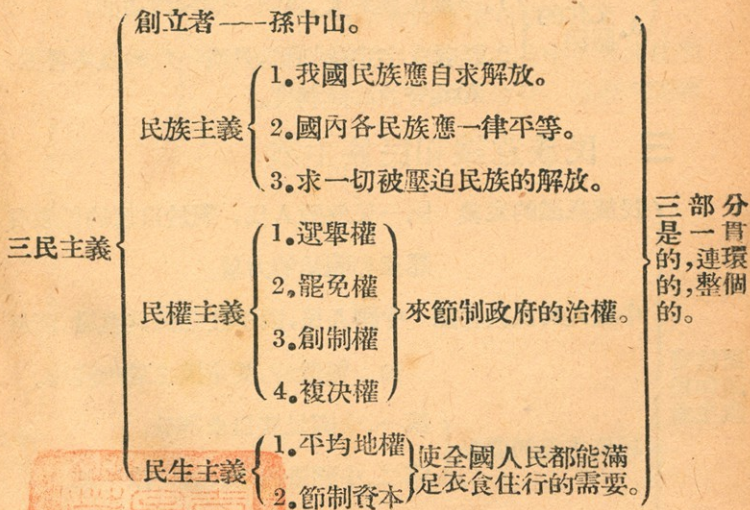 三民主義
創立者——孫中山。
民族主義
1.我國民族應自求解放。
2.國內各民族應一律平等。
3.求一切被壓迫民族的解放。
民權主義
1.選舉權
2,罷免權
3.創制權
4.複决權
來節制政府的治權。
民生主義
1.平均地權
2.節制資本
使全國人民都能滿
足衣食住行的需要。
三部分
是一貫
的,連環
的,整個
的。